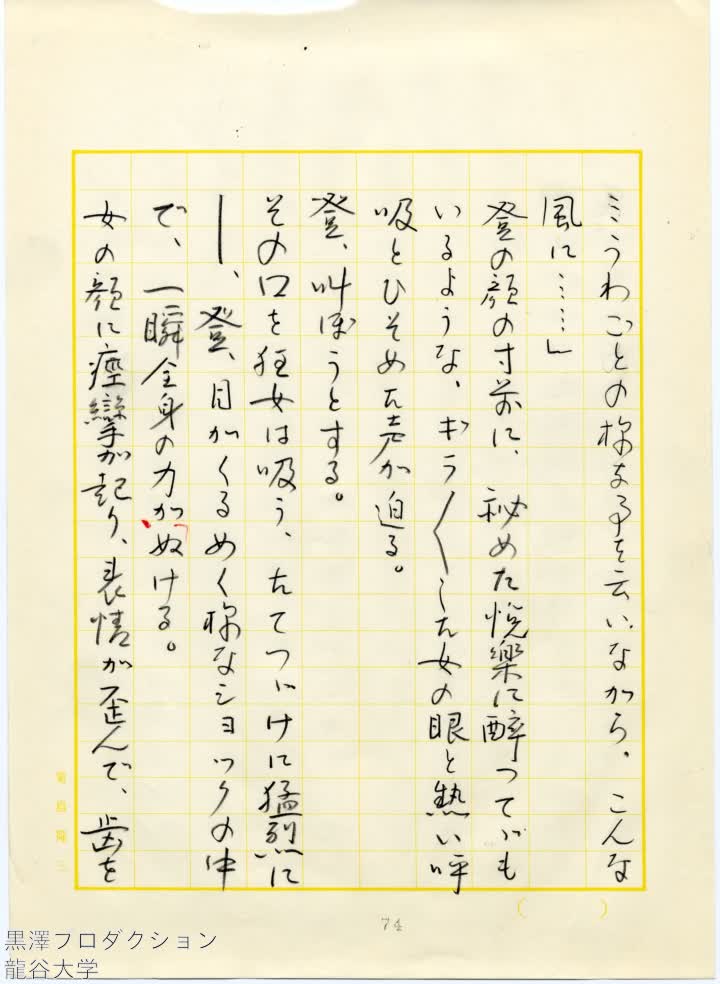 ミうわごとの様な事を云いながら、こんな
風に……」
登の顔の寸前に、秘めた悦樂に醉つてゞも
いるような、ギラ〱した女の眼と熱い呼
吸とひそめた声が迫る。
登、叫ぼうとする。
その口を狂女は吸う、たてつゞけに猛烈に
――、登、目がくるめく様なショックの中
で、一瞬全身の力がぬける。
女の顔に痙攣が起り、表情が歪んで、歯を
菊島隆三
( )
74
黒澤プロダクション
龍谷大学